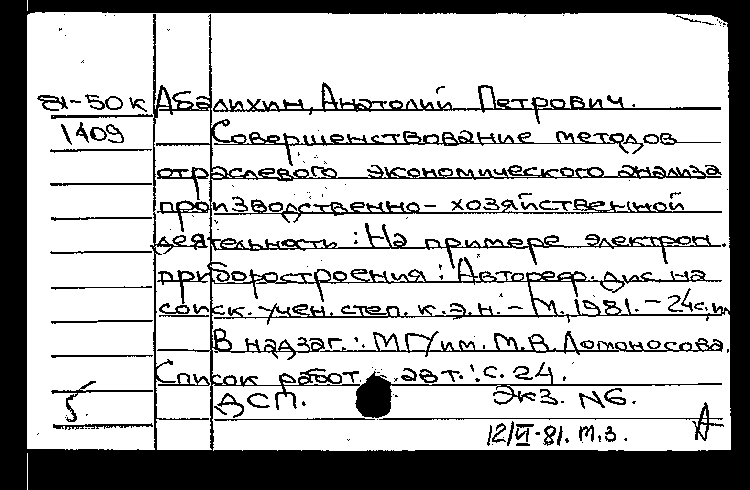 81-50к Абалихин, Анатолий Петрович.
1409 Совершенствование методов
отраслевого экономического анализа
производственно-хозяйственной
деятельности: На примере электрон.
приборостроения: Автореф. дис. на
соиск. учен. степ. к.э.н. - М., 1981. - 24с., ил
В надзаг.: МГУ им. М.В. Ломоносова.
Список работ авт.: с. 24.
5. ДСП. Экз. N6.
12/VI-81. т.з. А